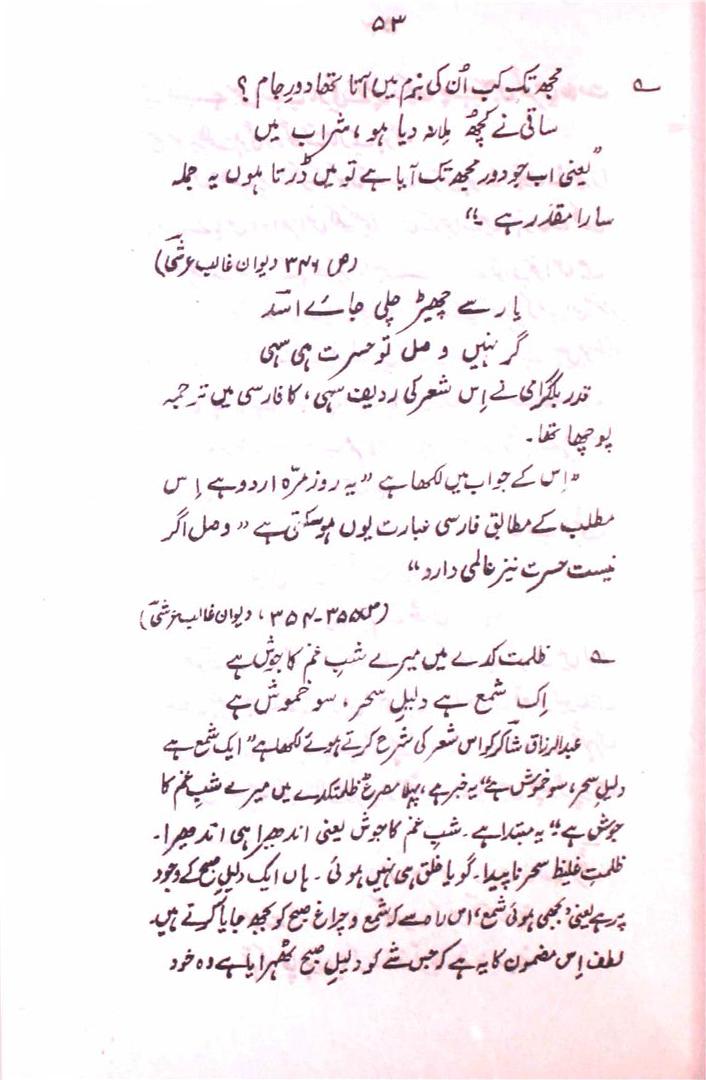 ۵۳
؎ مجھ تک کب اُن کی بزم میں آتا تھا دورِ جام ؟
ساقی نے کچھ ملا نہ دیا ہو ، شراب میں
"یعنی اب جو دور مجھ تک آیا ہے تو میں ڈرتا ہوں یہ جملہ
سارا مقدّر ہے ۔"
(ص ۳۴۶ دیوان غالب عرشیؔ)
یار سے چھیڑ چلی جائے اسدؔ
گر نہیں وصل تو حسرت ہی سہی
قدر بلگرامی نے اِس شعر کی ردیف سہی ، کا فارسی میں ترجمہ
پوچھا تھا۔
"اِس کے جواب میں لکھا ہے "یہ روز مرّہ اردو ہے اِس
مطلب کے مطابق فارسی عبارت یوں ہوسکتی ہے "وصل اگر
نیست حسرتِ نیز عالمی دارد"
(ص ۳۵۵-۳۵۴ ، دیوان غالب عرشیؔ)
؎ ظلمت کدے میں میرے شبِ غم کا جوش ہے
اِک شمع ہے دلیلِ سحر ، سو خموش ہے
عبدالرزاق شاکرؔ کو اس شعر کی شرح کرتے ہوئے لکھا ہے "ایک شمع ہے
دلیل سحر ، سو خموش ہے" یہ خبر ہے ، پہلا مصرع "ظلمتکدے میں میرے شبِ غم کا
جوش ہے" یہ مبتدا ہے ۔ شبِ غم کا جوش یعنی اندھیرا ہی اندھیرا ۔
ظلمتِ غلیظ سحر ناپید ا۔ گویا خلق ہی نہیں ہوئی ۔ ہاں ایک دلیلِ صبح کے وجود
پر ہے یعنی 'بجھی ہوئی شمع' اس راہ سے کہ شمع و چراغ صبح کو بجھ جایا کرتے ہیں۔
لطف اِس مضمون کا یہ ہے کہ جس شے کو دلیلِ صبح ٹھہرایا ہے وہ خود